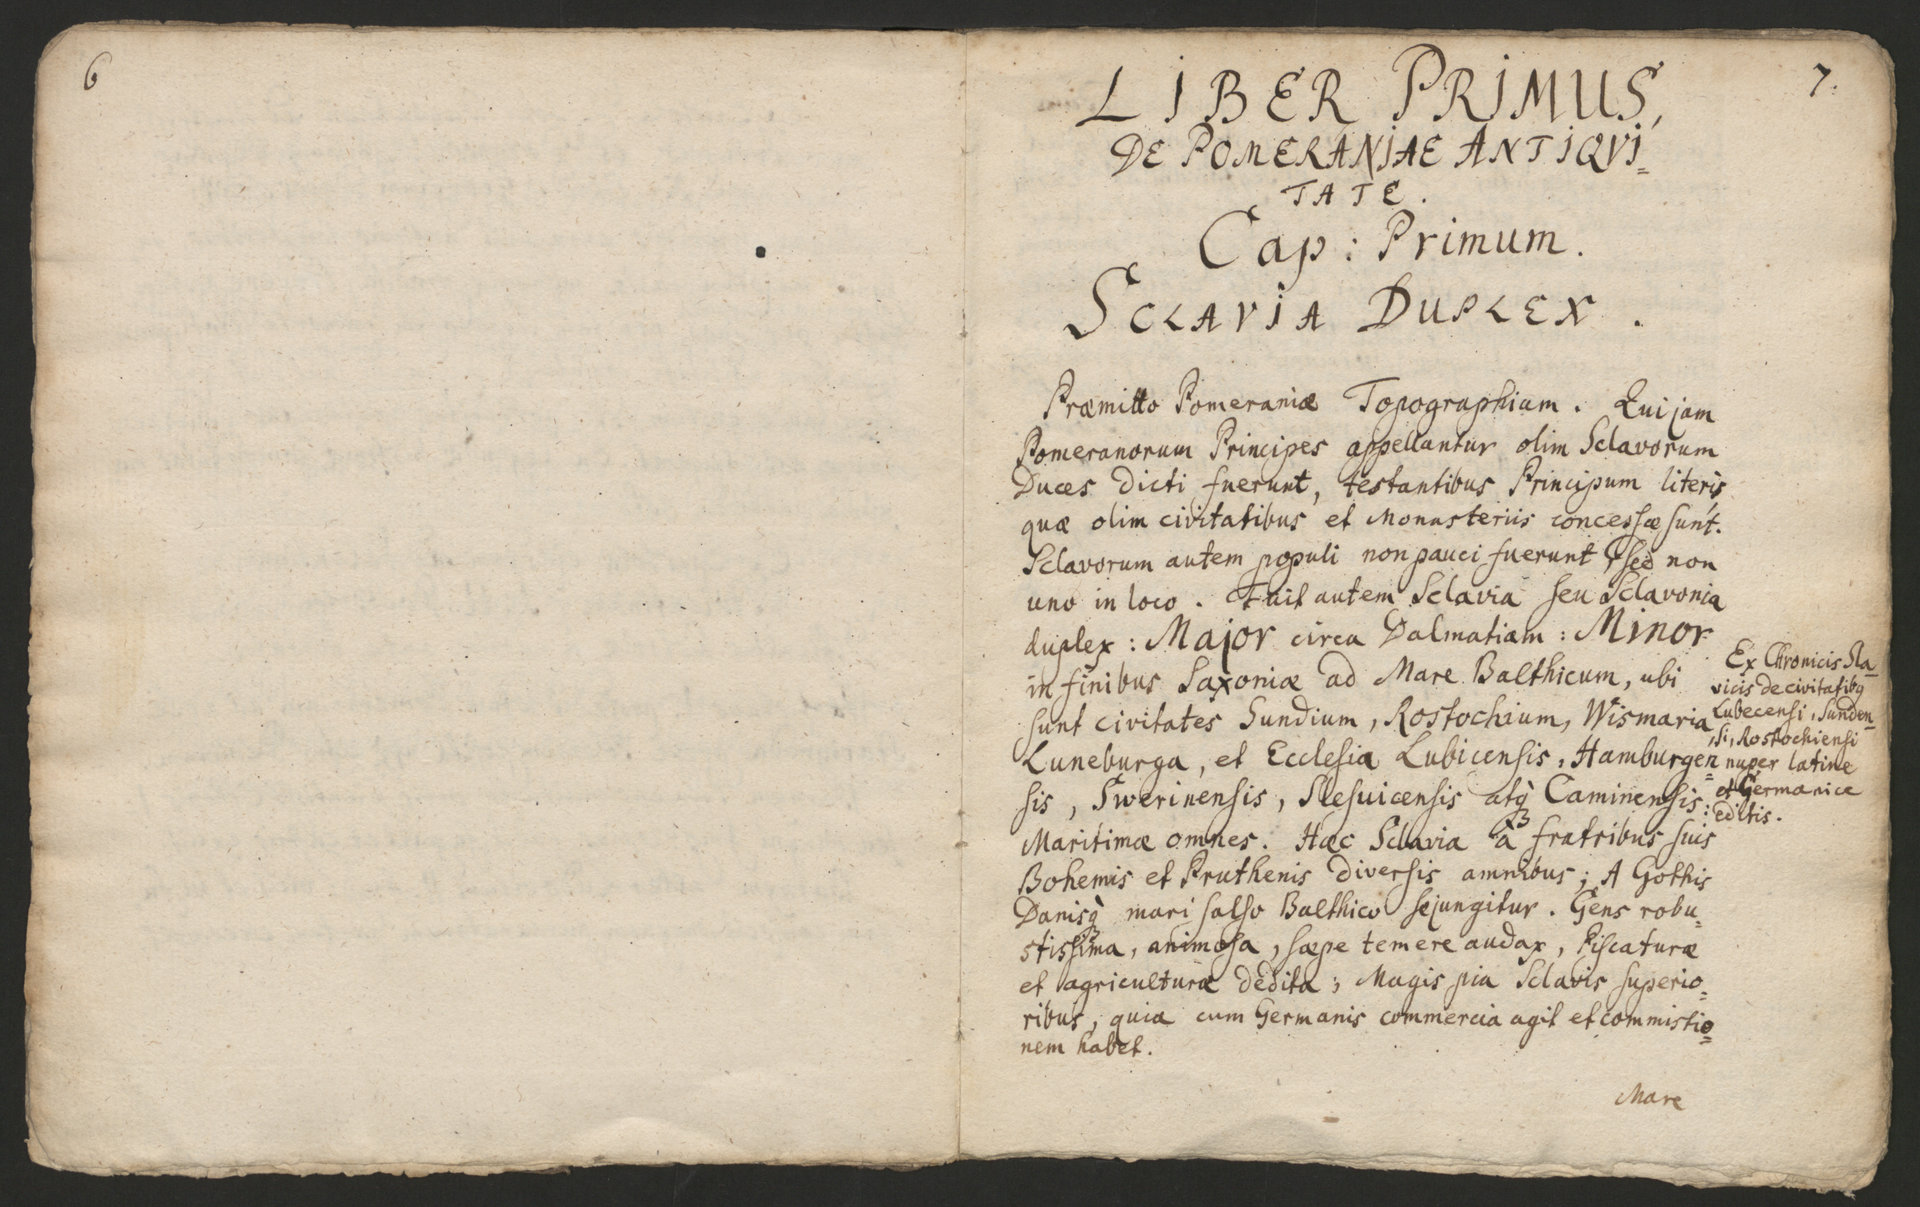 6
7.
LIBER PRIMUS,
DE POMERANIAE ANTIQVI=
TATE.
Cap: Primum.
SCLAVIA DUPLEX.
Præmitto Pomeraniæ Topographiam. Qui jam
Pomeranorum Principes appellantur olim Sclavorum
Duces dicti fuerunt, testantibus Principum literis
quæ olim civitatibus et Monasteriis concessæ sunt.
Sclavorum autem populi non pauci fuerunt, sed non
uno in loco. Fuit autem Sclavia seu Sclavonia
duplex: Major circa Dalmatiam: Minor
in finibus Saxoniæ ad Mare Balthicum, ubi
sunt civitates Sundium, Rostochium, Wismaria,
Luneburga, et Ecclesia Lubicensis, Hamburgen=
sis, Swerinensis, Slesuicensis atq̀ Caminensis:
Maritimæ omnes. Hæc Sclavia à fratribus suis
Bohemis et Pruthenis diversis amnibus; A Gothis
Danisq̀ mari salso Balthico sejungitur. Gens robu=
stissima, animosa, sæpe temere audax, Piscaturæ
et agriculturæ dedita; Magis pia Sclavis superio=
ribus, quia cum Germanis commercia agit et commistio=
nem habet.
Mare
Ex Chronicis Sla=
vicis de civitatibq
Lubecensi, Sunden=
si, Rostochiensi
nuper latine
et Germanice
editis.